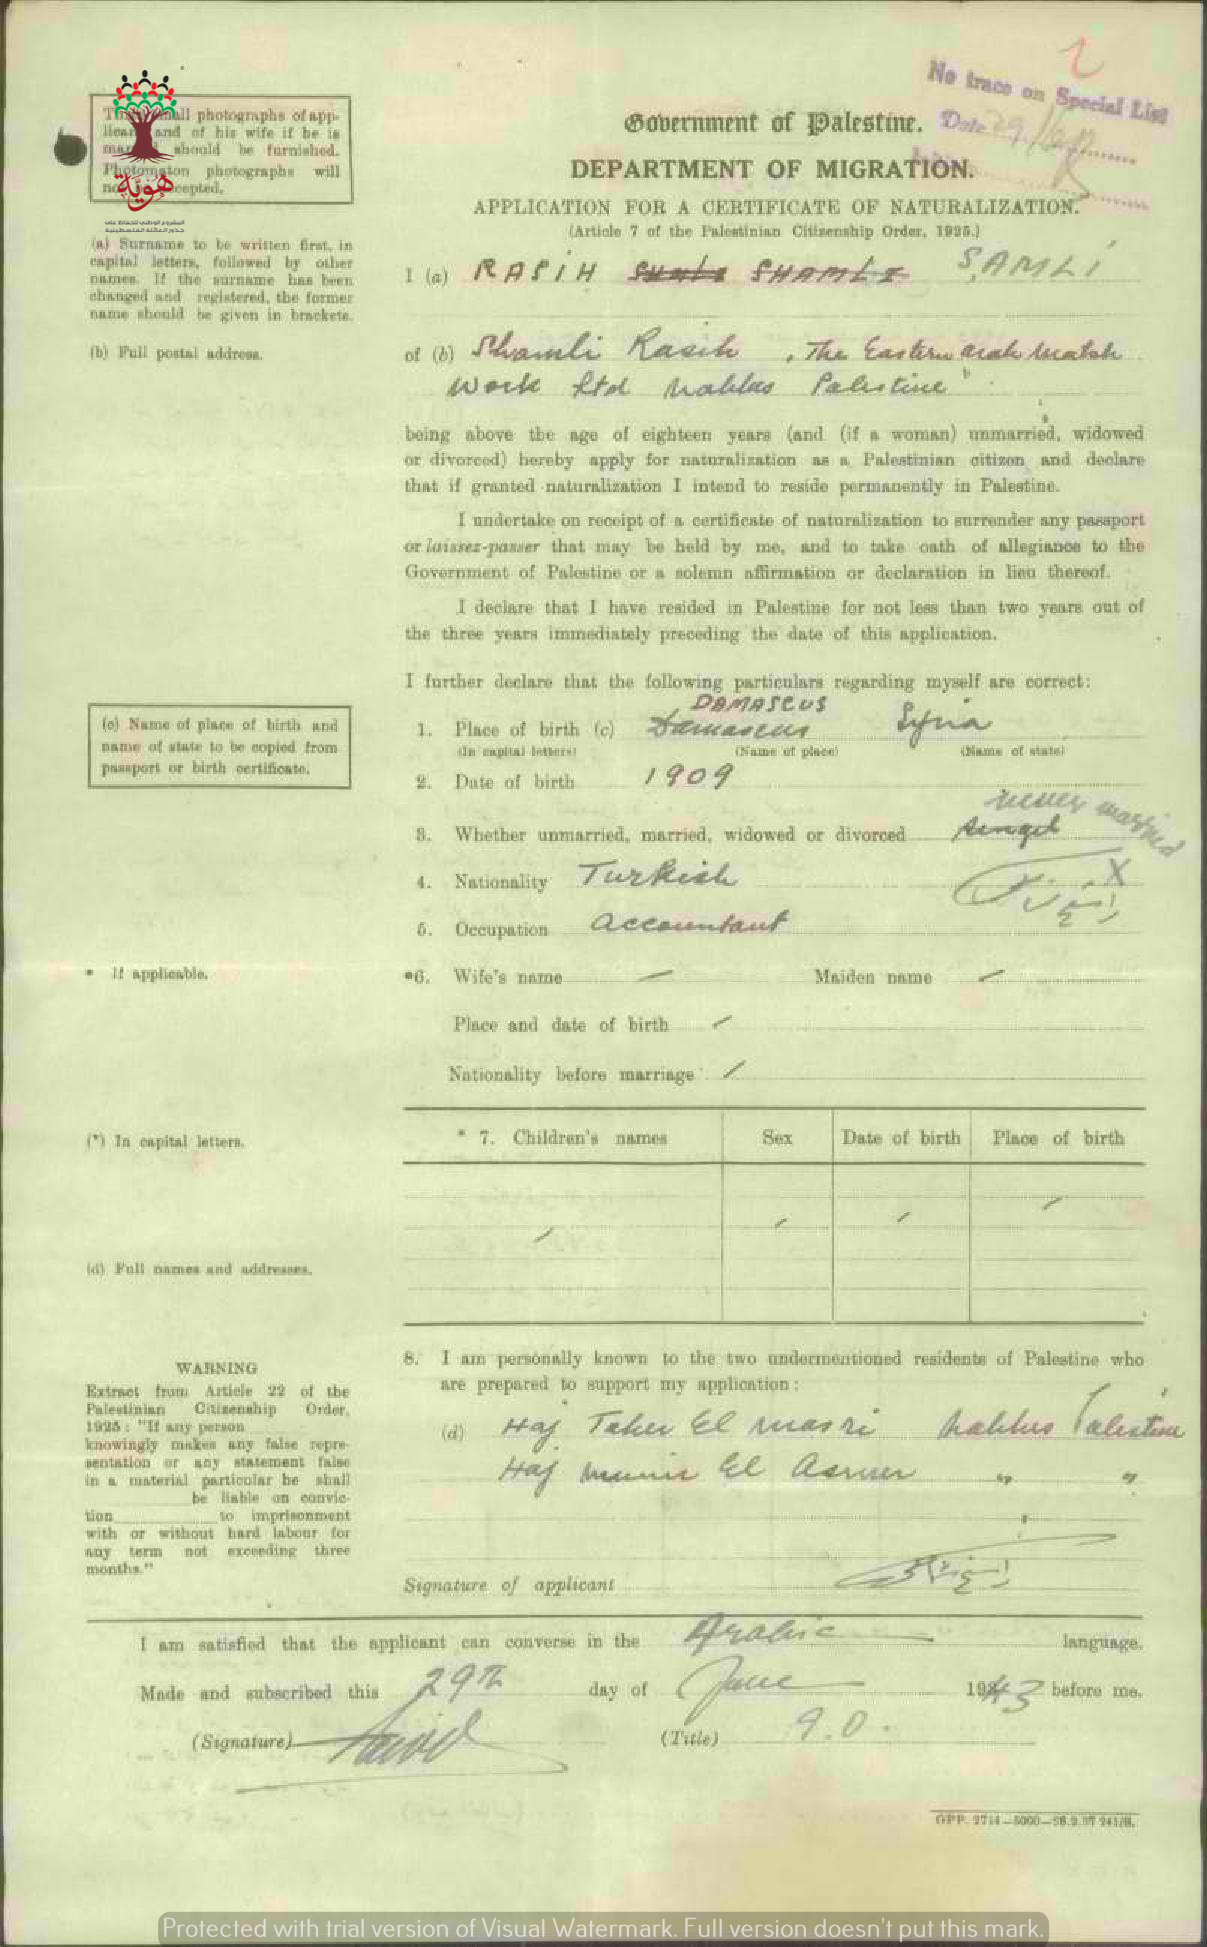 2
No trace on Special List
Date 29
Two small photographs of app-
licant and of his wife if he is
married should be furnished.
Photomaton photographs will
not be accepted.
هوية
المشروع الوطني للحفاظ على
جذور العائلة الفلسطينية
Government of Palestine.
DEPARTMENT OF MIGRATION.
APPLICATION FOR A CERTIFICATE OF NATURALIZATION.
(Article 7 of the Palestinian Citizenship Order, 1925.)
(a) Surname to be written first, in
capital letters, followed by other
names. If the surname has been
changed and registered, the former
name should be given in brackets.
I (a) RASIH SHAMLI SAMLI
(b) Full postal address.
of (b) Shamli Rasih, The Eastern arab Match
Work Ltd Nablus Palestine
being above the age of eighteen years (and (if a woman) unmarried, widowed
or divorced) hereby apply for naturalization as a Palestinian citizen and declare
that if granted naturalization I intend to reside permanently in Palestine.
I undertake on receipt of a certificate of naturalization to surrender any passport
or laissez-passer that may be held by me, and to take oath of allegiance to the
Government of Palestine or a solemn affirmation or declaration in lieu thereof.
I declare that I have resided in Palestine for not less than two years out of
the three years immediately preceding the date of this application.
I further declare that the following particulars regarding myself are correct:
(c) Name of place of birth and
name of state to be copied from
passport or birth certificate.
DAMASCUS
1. Place of birth (c) Damascus Syria
(In capital letters) (Name of place) (Name of state)
2. Date of birth 1909
never married
3. Whether unmarried, married, widowed or divorced Singel
4. Nationality Turkish X
5. Occupation Accountant
* If applicable.
*6. Wife's name — Maiden name —
Place and date of birth —
Nationality before marriage —
(*) In capital letters.
* 7. Children's names Sex Date of birth Place of birth
(d) Full names and addresses.
8. I am personally known to the two undermentioned residents of Palestine who
are prepared to support my application:
(d) Haj Taher El Masri Nablus Palestine
Haj Munir El Asmer " "
WARNING
Extract from Article 22 of the
Palestinian Citizenship Order,
1925: "If any person
knowingly makes any false repre-
sentation or any statement false
in a material particular he shall
be liable on convic-
tion to imprisonment
with or without hard labour for
any term not exceeding three
months."
Signature of applicant
I am satisfied that the applicant can converse in the Arabic language.
Made and subscribed this 29th day of June 1943 before me.
(Signature) (Title) 9.0.
GPP. 2714—5000—28.9.37 241/H.
Protected with trial version of Visual Watermark. Full version doesn't put this mark.